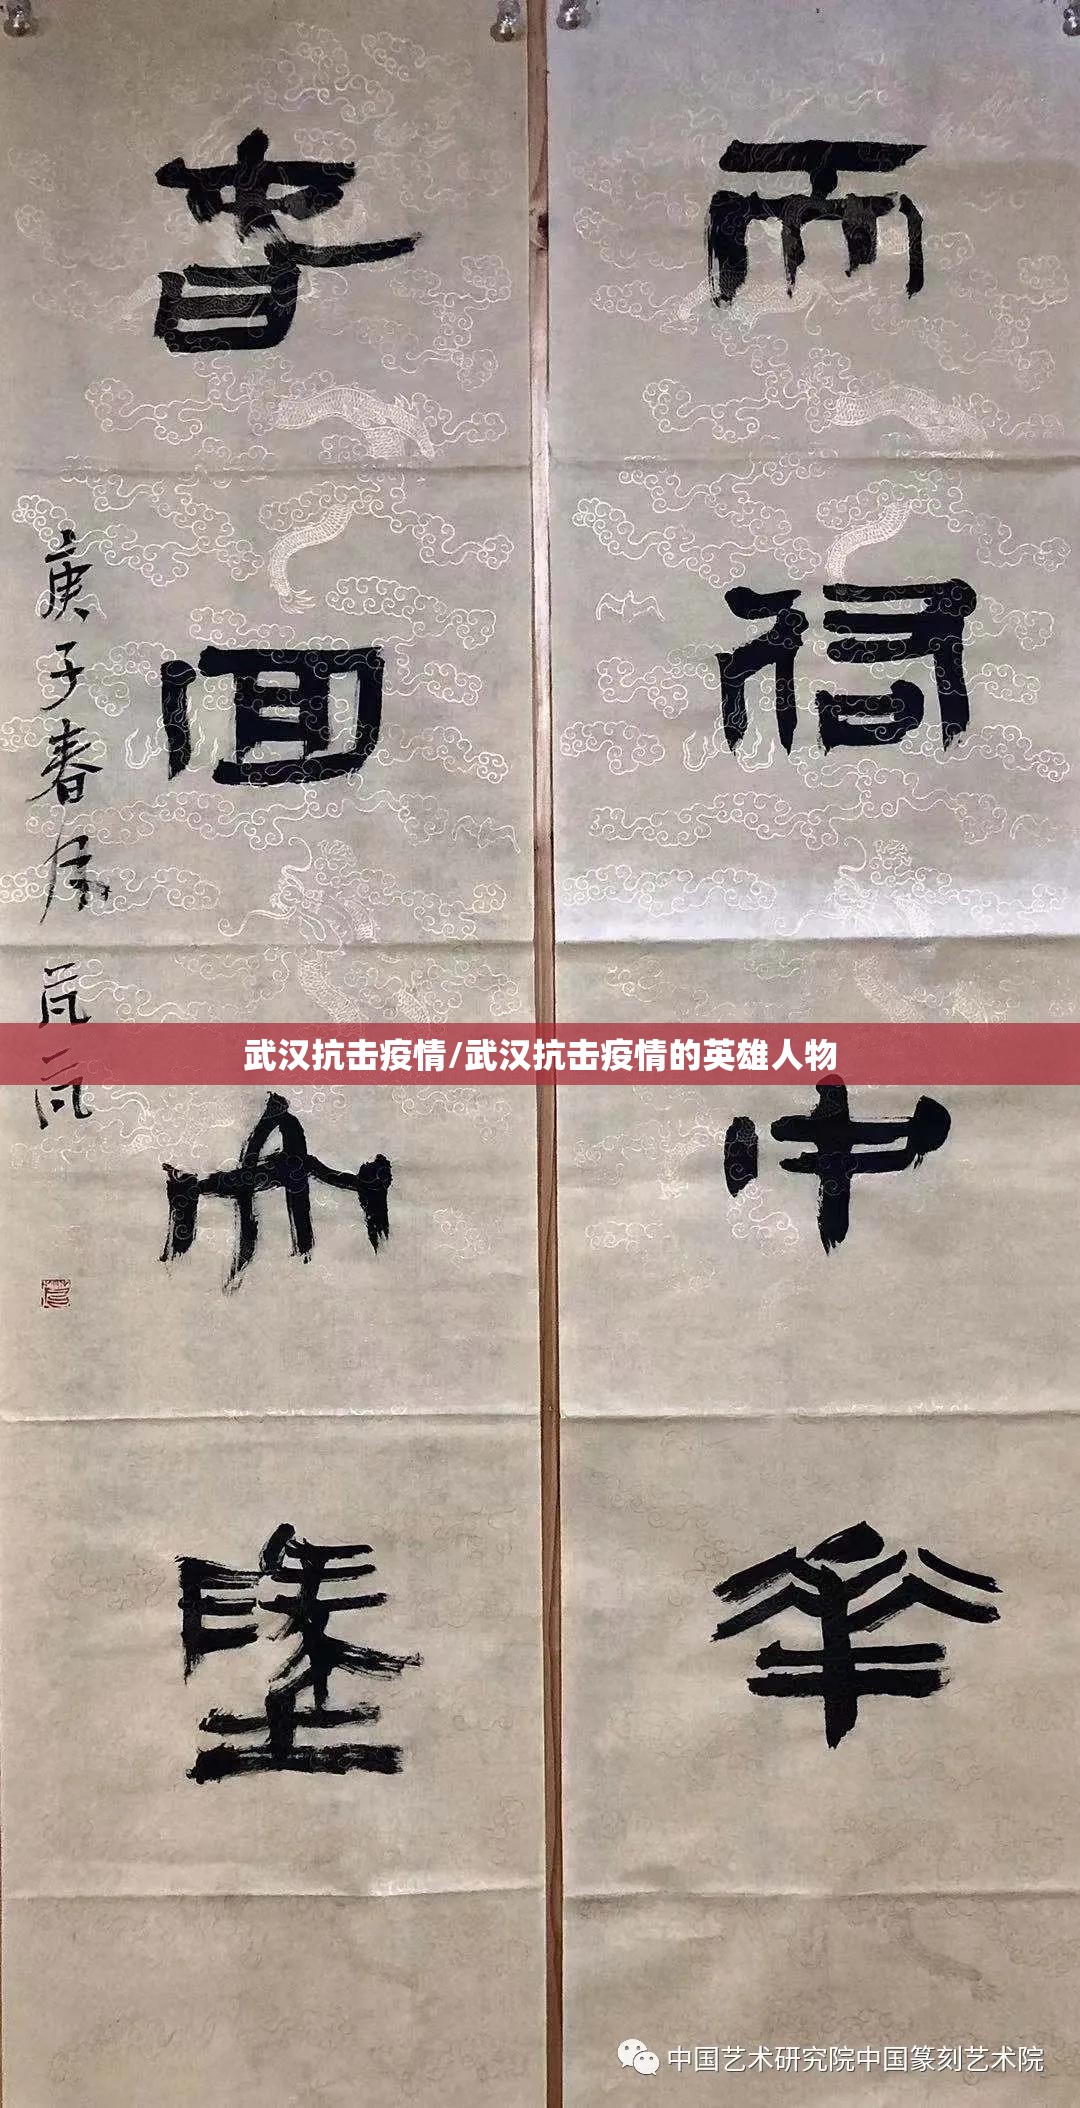 天祐中華
春回大墬
庚子春
武汉抗击疫情/武汉抗击疫情的英雄人物
中国艺术研究院中国篆刻艺术院